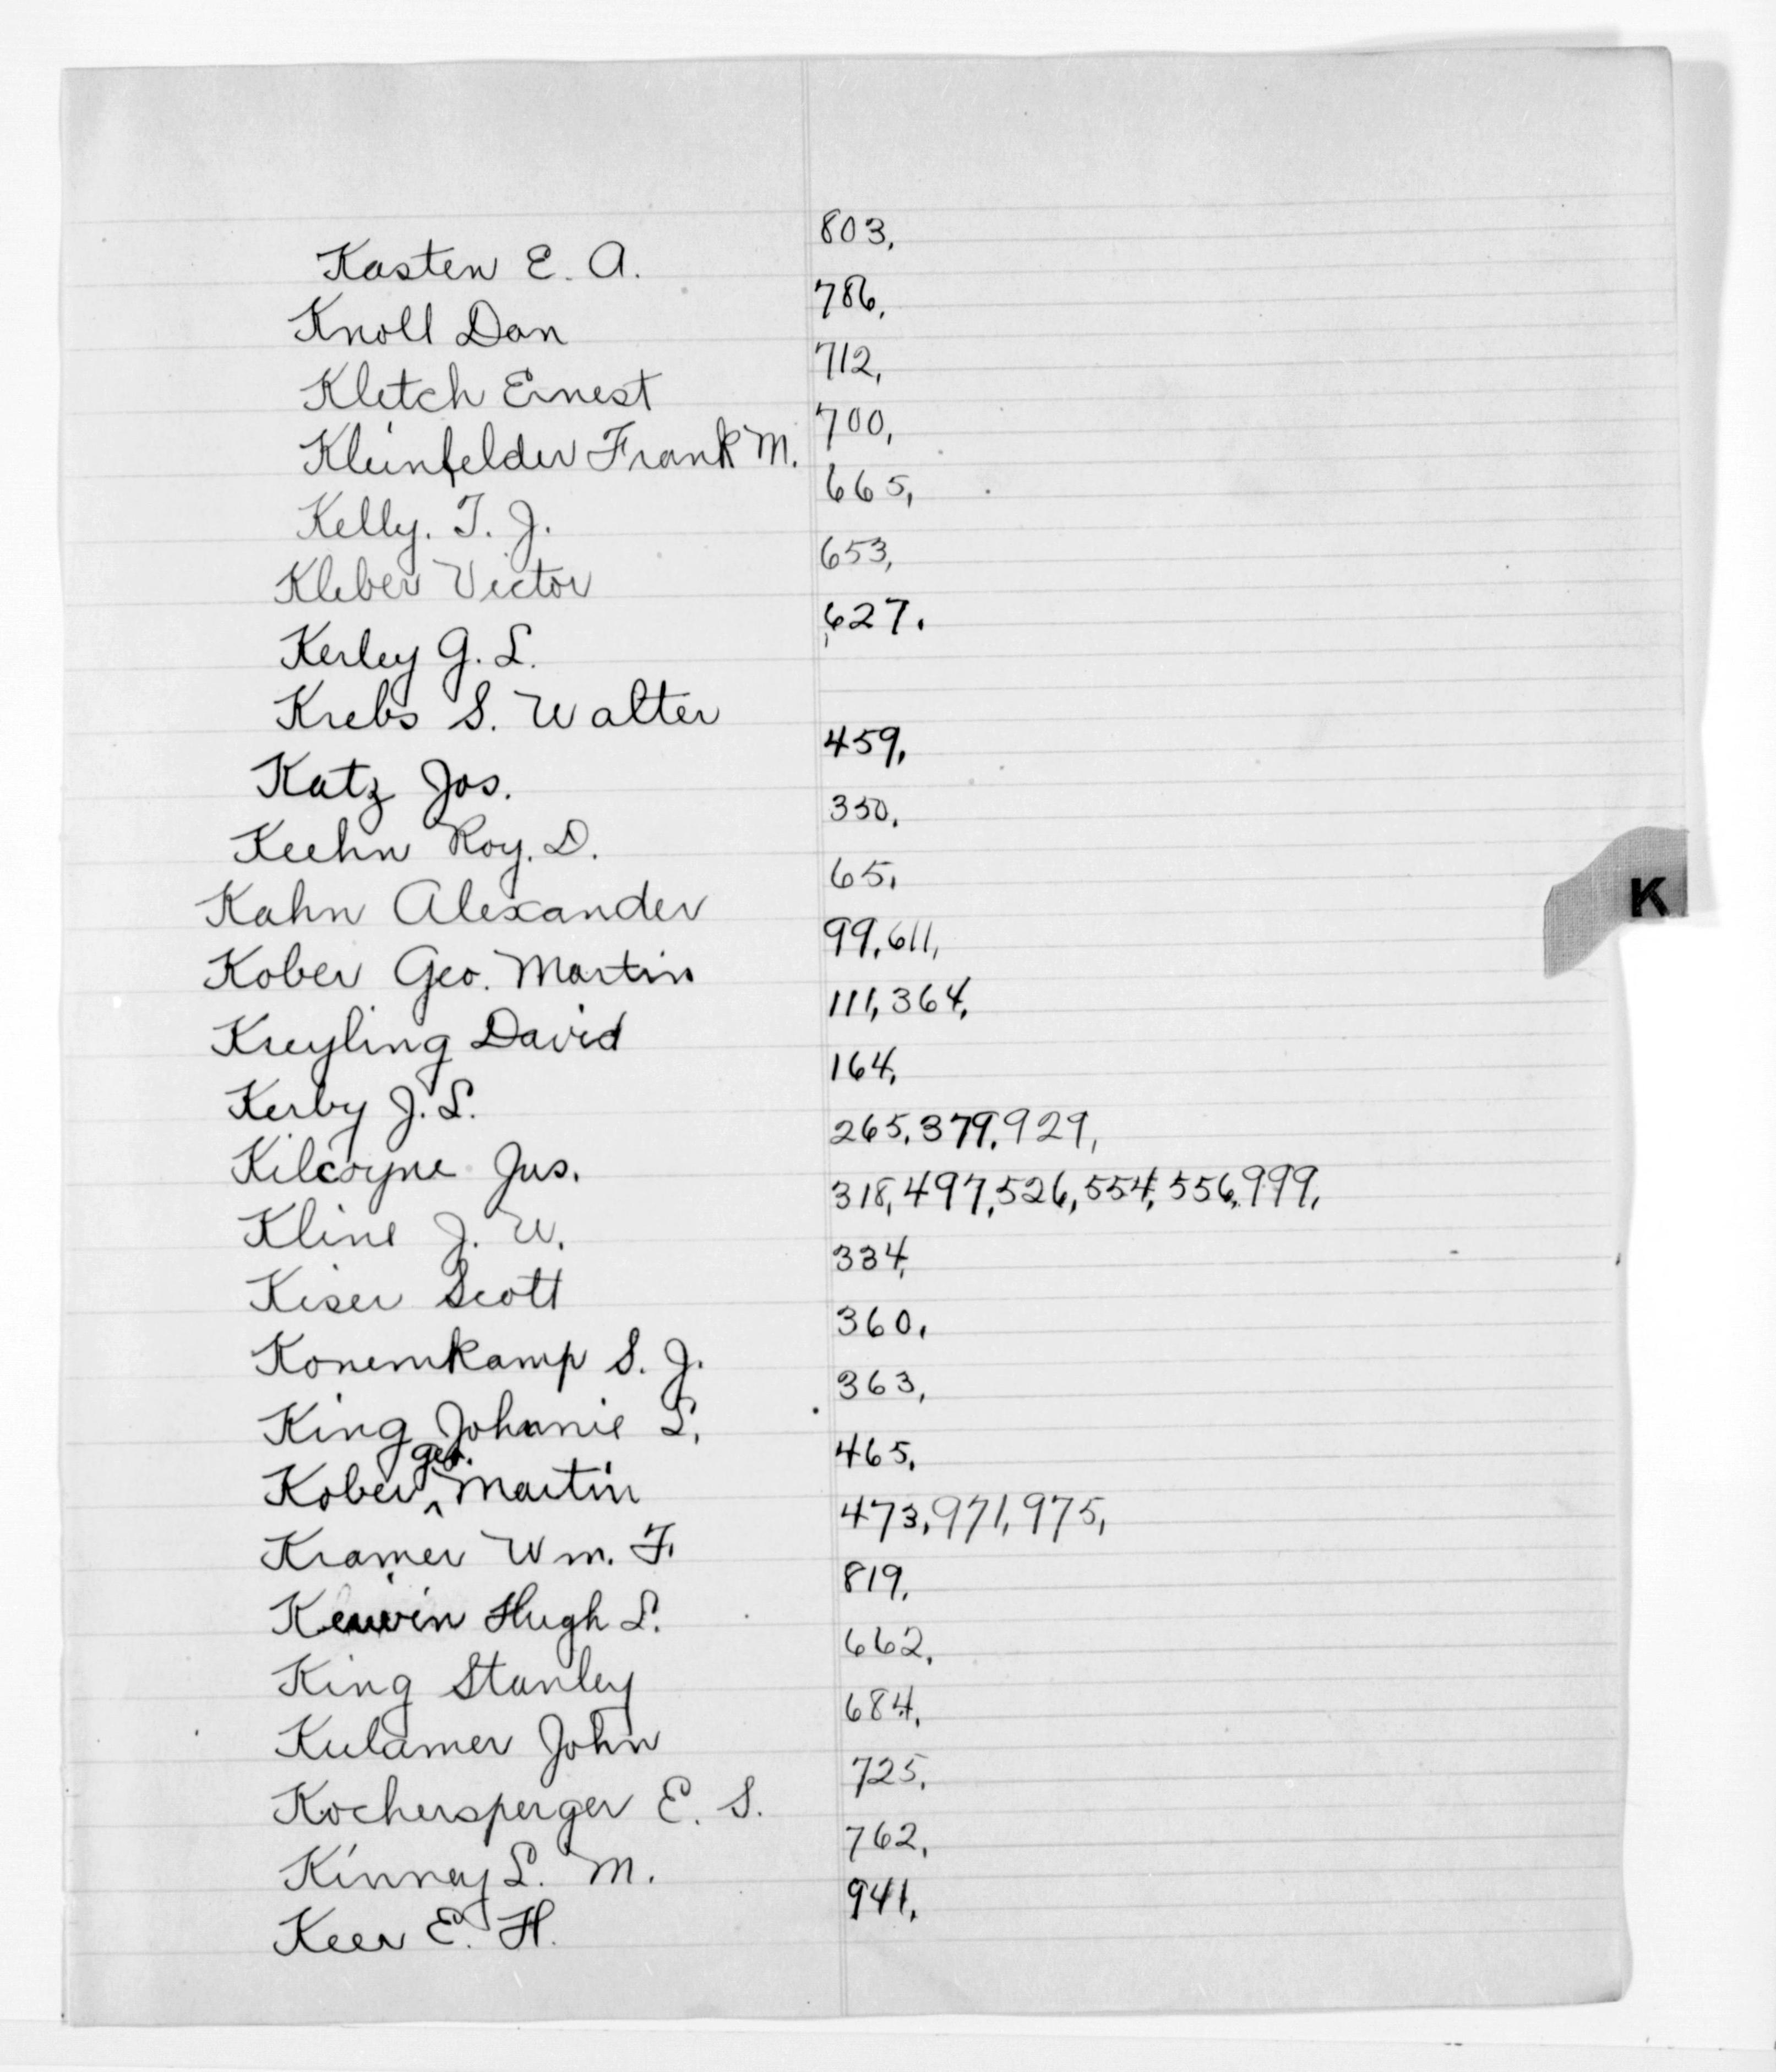 Kasten E. A. 803,
Knoll Dan 786,
Kletch Ernest 712,
Kleinfelder Frank M. 700,
Kelly. T. J. 665,
Kleber Victor 653,
Kerley G. L. 627.
Krebs S. Walter
Katz Jos. 459,
Keehn Roy. D. 350,
Kahn Alexander 65,
Kober Geo. Martin 99,611,
Kreyling David 111,364,
Kerby J. L. 164,
Kilcoyne Jus. 265,379,929,
Kline J. W. 318,497,526,554,556,999,
Kiser Scott 334,
Konemkamp S. J. 360,
King Johannie L. 363,
Kober Geo. Martin 465,
Kramer Wm. F. 473,971,975,
Kerwin Hugh L. 819,
King Stanley 662,
Kulamer John 684,
Kochersperger E. S. 725,
Kinney L. M. 762,
Keer E. H. 941,
K